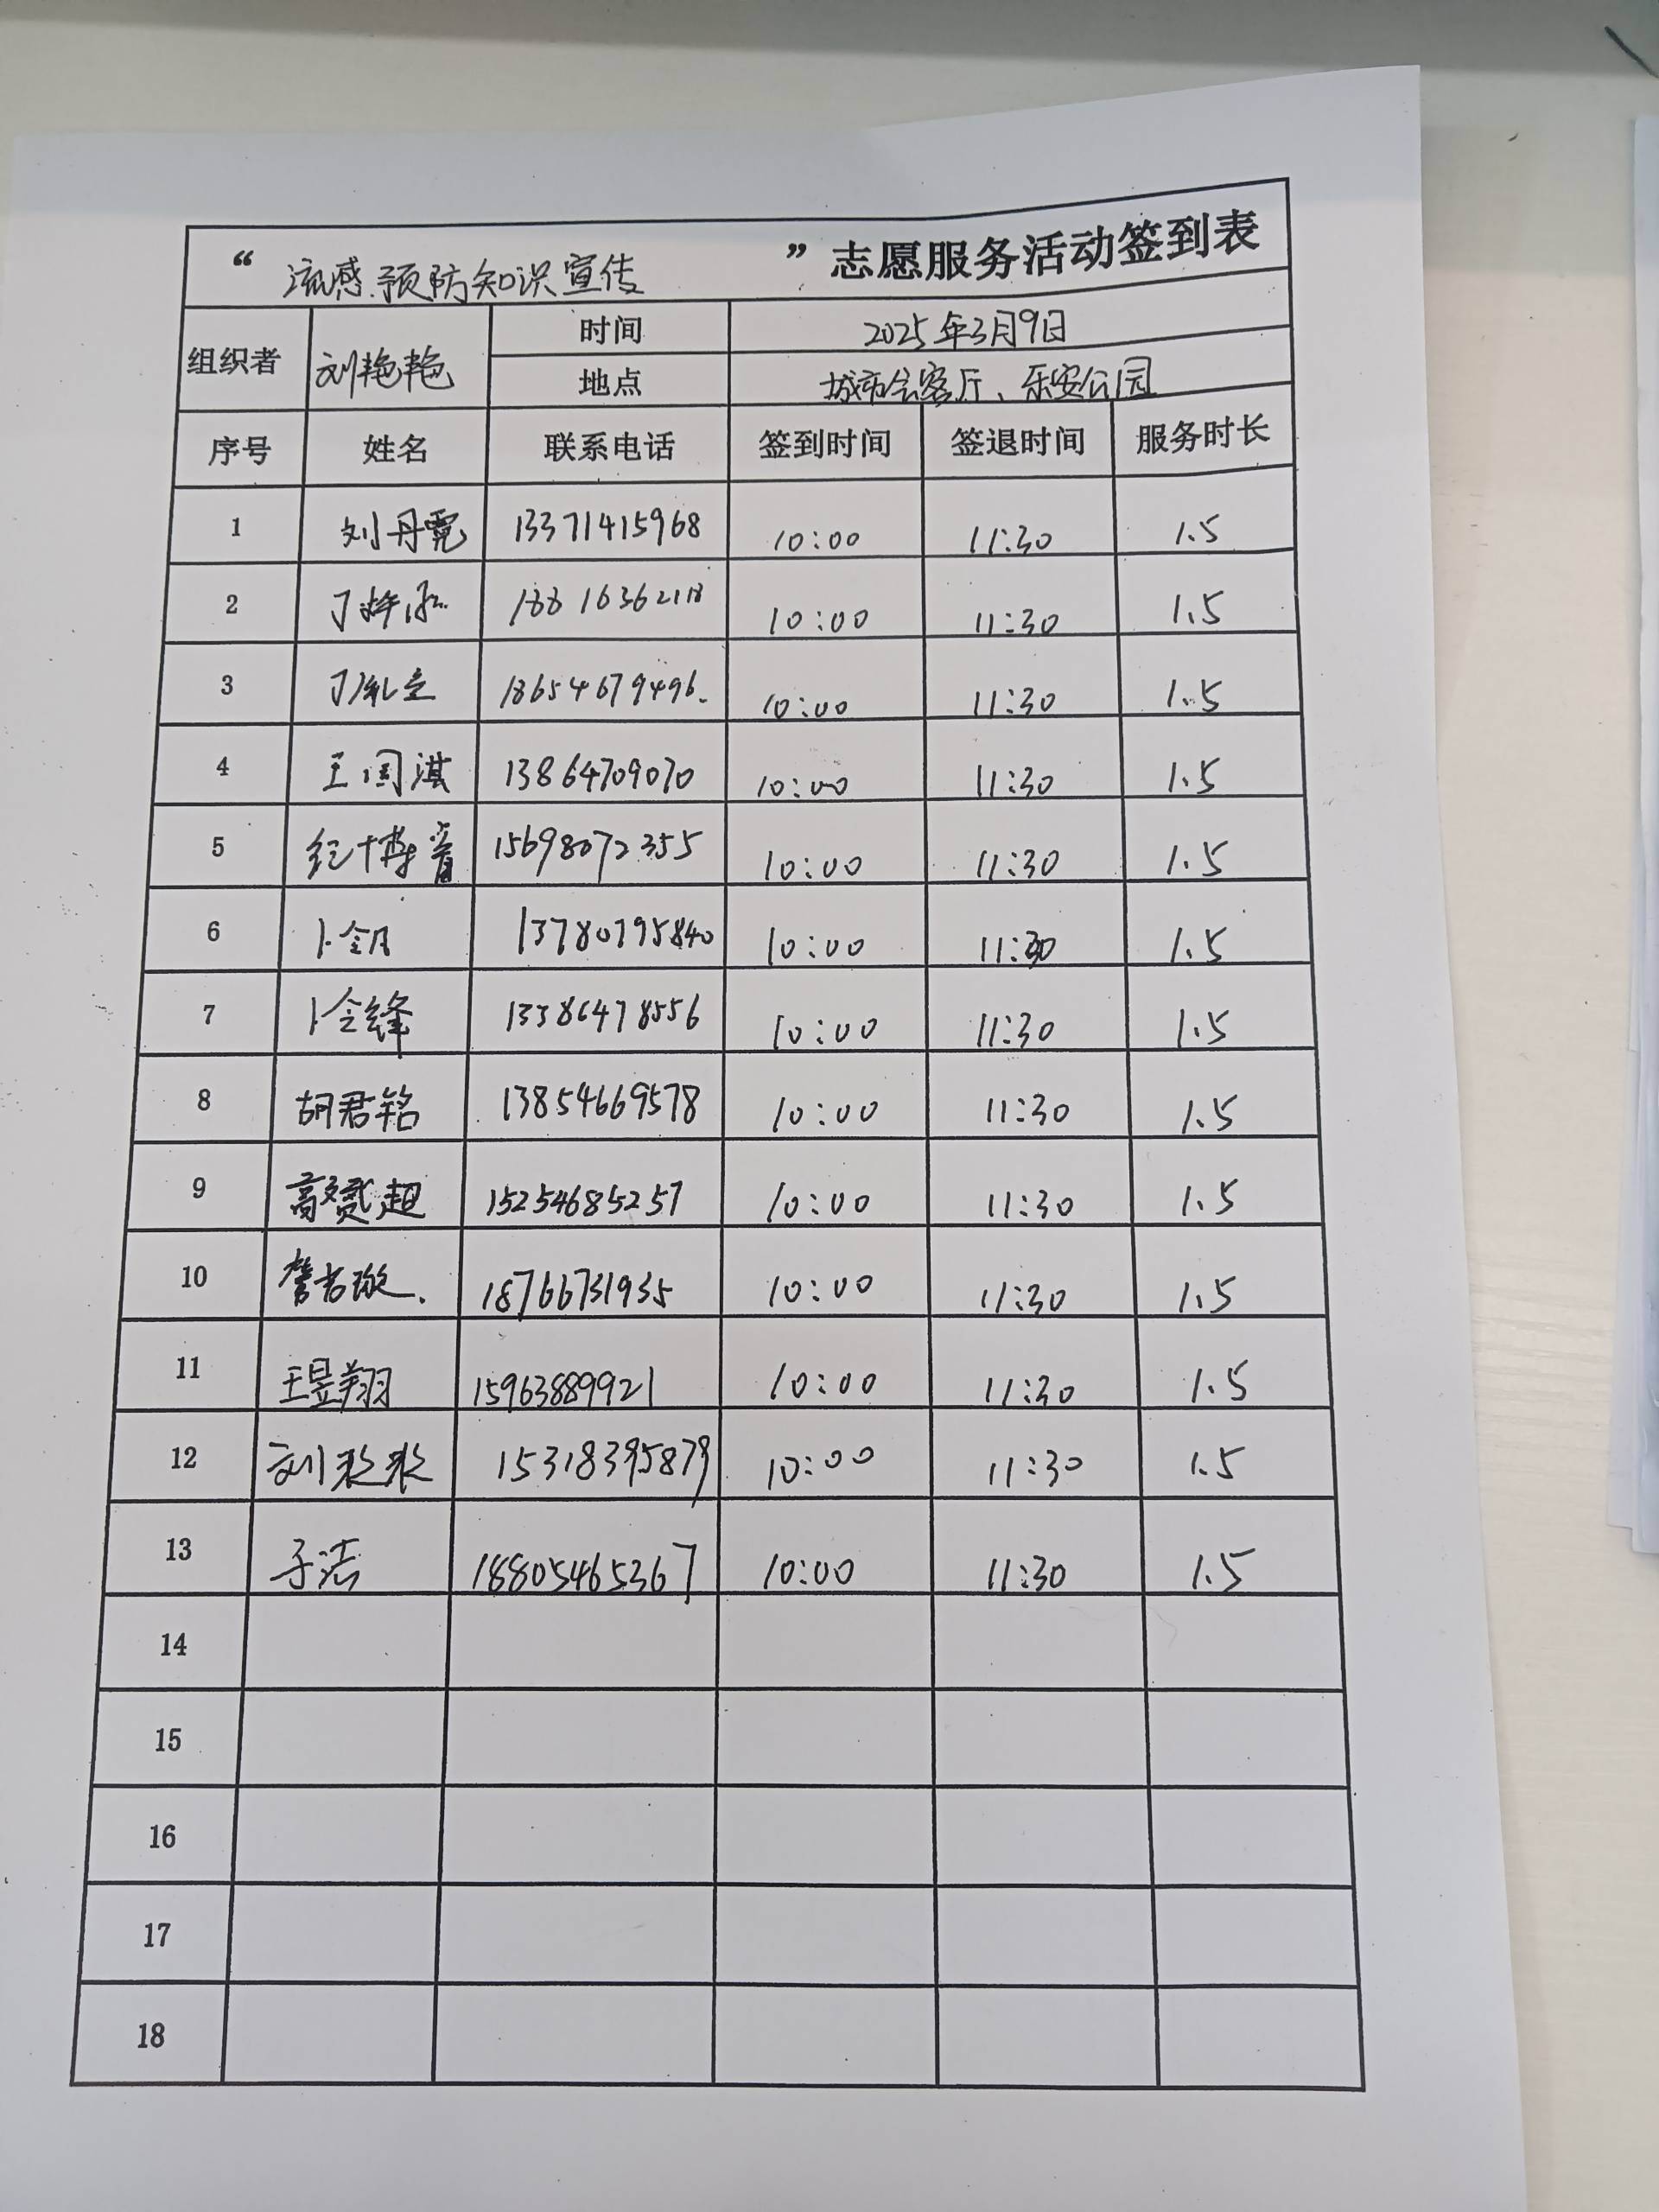 “ 流感预防知识宣传 ” 志愿服务活动签到表
组织者 刘艳艳 时间 2025年3月9日
地点 城市会客厅、乐安公园
序号 姓名 联系电话 签到时间 签退时间 服务时长
1 刘丹霓 13371415968 10:00 11:30 1.5
2 10:00 11:30 1.5
3 18654679496. 10:00 11:30 1.5
4 13864709070 10:00 11:30 1.5
5 纪博睿 15698072355 10:00 11:30 1.5
6 13780795840 10:00 11:30 1.5
7 卜令锋 13386478556 10:00 11:30 1.5
8 胡君铭 13854669578 10:00 11:30 1.5
9 高赟超 15254685257 10:00 11:30 1.5
10 18766731935 10:00 11:30 1.5
11 王昱翔 15963889921 10:00 11:30 1.5
12 刘 10:00 11:30 1.5
13 18805465367 10:00 11:30 1.5
14
15
16
17
18